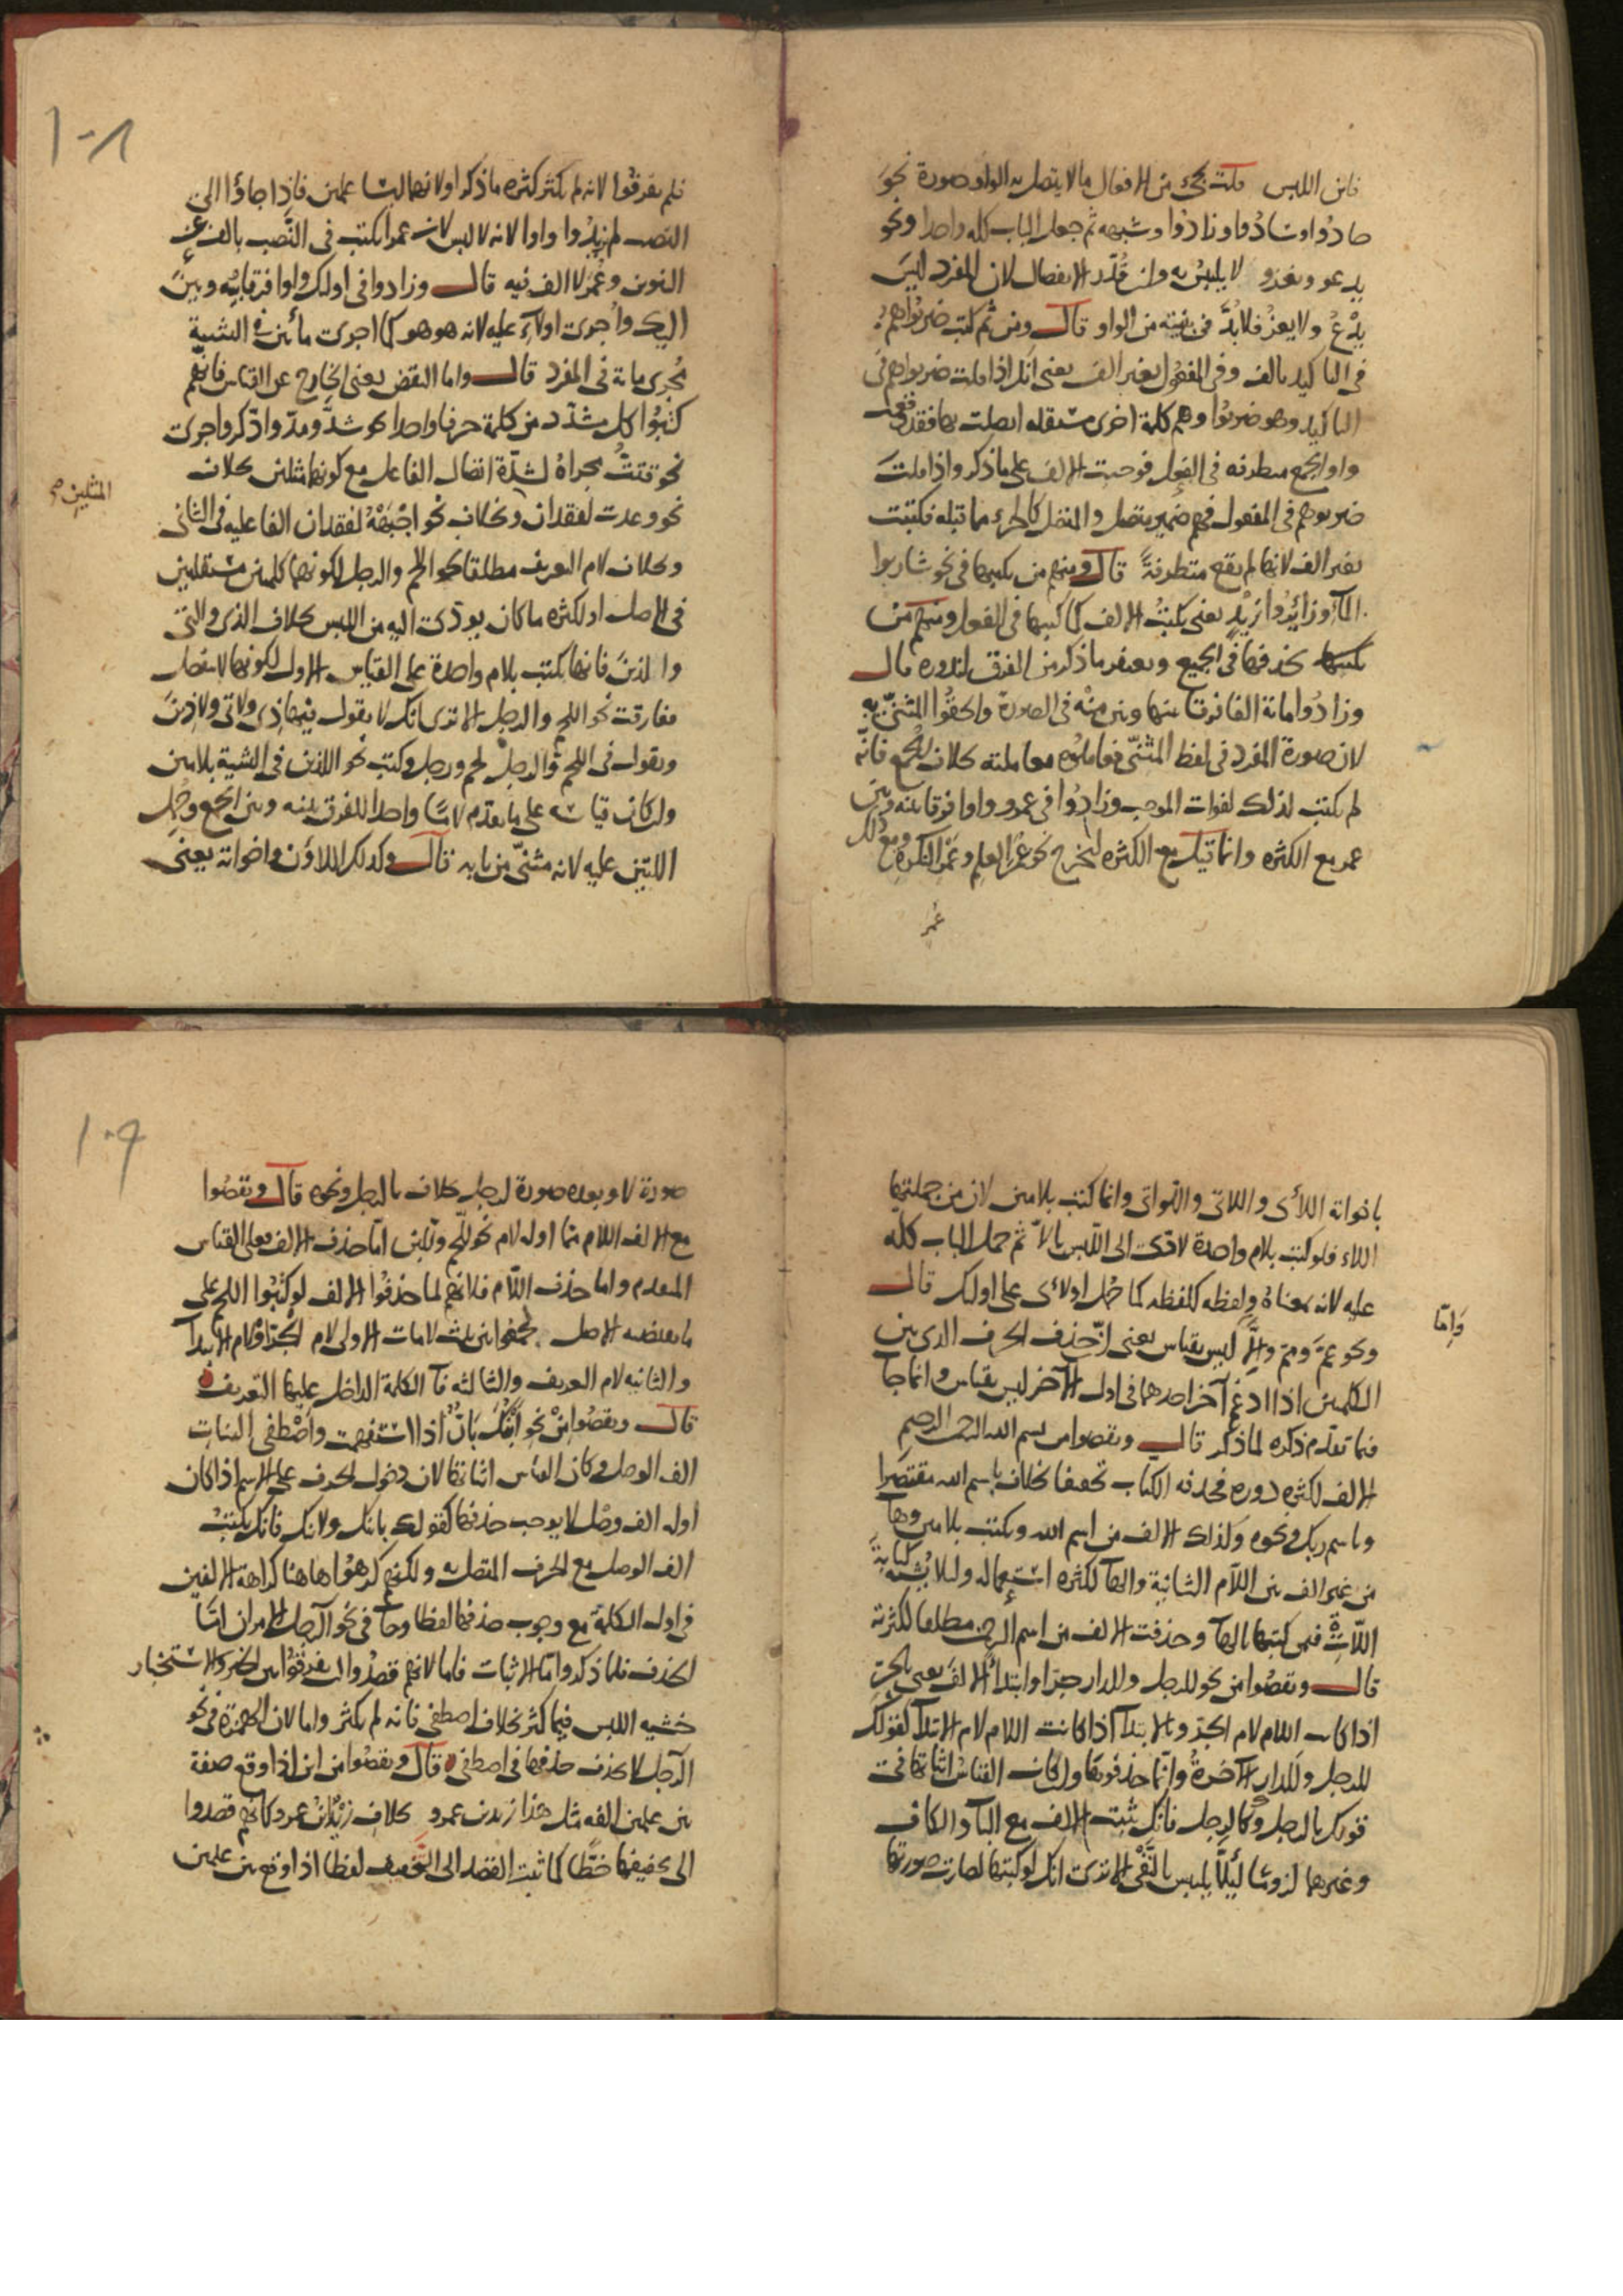 فاين اللبس قلت يجئ من الافعال ما لا يتصل به الواو صورة نحو
جادوا وسادوا وزادوا وشبهه ثم جعل الباب كله واحدا ونحو
يدعو ويغزو لا يلبس به وان قدر الانفصال لان المفرد ليس
يدع ولا يغز فلا بد في بنيته من الواو قال ومن ثم كتب ضربوا هم
في التاكيد بالف وفي المفعول بغير الف يعني انك اذا قلت ضربوا هم في
التاكيد وهو ضربوا وهم كلمة اخرى مستقله اتصلت بها فقد وقعت
واو الجمع متطرفه في الفعل فوجبت الالف على ما ذكر واذا قلت
ضربوهم في المفعول فهم ضمير متصل والمتصل كالجزء مما قبله فكتبت
بغير الف لانها لم يقع متطرفة قال ومنهم من يكتبها في نحو شاربوا
الماء وزائدوا زيد يعني يكتب الالف كما كتبها في الفعل ومنهم من
يكتبها يحذفها في الجميع ويغتفر ما ذكر من الفرق لندوره قال
وزادوا مائة الفا فرقا بينها وبين منه في الصورة والحقوا المثنى به
لان صورة المفرد في لفظ المثنى فعاملوه معاملته بخلاف الجمع فانه
لم يكتب لذلك لفوات الموجب وزادوا في عمرو واوا فرقا بينه وبين
عمر مع الكثره وانما قيل مع الكثره ليخرج نحو عمر العلم وعمر النكرة ومع ذلك
عمر
١٠٨
فلم يفرقوا لانه لم يكثر كثره ما ذكر اولا لانهما ليسا علمين فاذا جاؤا الى
النصب لم يزيدوا واوا لانه لا لبس لان عمرا يكتب في النصب بالف عن
التنوين وعمر لا الف فيه قال وزادوا في اولئك واوا فرقا بينه وبين
اليك واجرى اولاء عليه لانه هو هو كما اجرى مائتين في التثنية
مجرى مائة في المفرد قال واما النقص يعني الخارج عن القياس فانهم
كتبوا كل مشدد من كلمة حرفا واحدا نحو شد ومد وادكر واجرى
نحو قتت مجراه لشدة اتصال الفاعل مع كونهما مثلين بخلاف
نحو وعدت لفقدان وبخلاف نحو اجبهه لفقدان الفاعليه في الثاني
المثلين صح
وبخلاف لام التعريف مطلقا نحو اللحم والرجل لكونهما كلمتين مستقلتين
في الاصل او لكثره ما كان يودى اليه من اللبس بخلاف الذي والتي
والذين فانها يكتب بلام واحدة على القياس الاول لكونها لا تنفصل
ففارقت نحو اللحم والرجل الا ترى انك لا يقول فيها ذي ولا تي ولا ذين
ويقول في اللحم والرجل لحم ورجل وكتب نحو اللذين في التثنية بلامين
وان كان قياسه على ما تقدم لاما واحدا للفرق بينه وبين الجمع وحمل
اللتين عليه لانه مثنى من بابه قال وكذلك اللاؤن واخواته يعني
باخواته اللائي واللاتي واللواتي وانما كتب بلامين لان من جملتها
اللاء فلو كتبت بلام واحدة لادى الى اللبس بالا ثم حمل الباب كله
عليه لانه بمعناه ولفظه كلفظه كما حمل اولائي على اولئك قال
ونحو عم ومم والا ليس بقياس يعني ان حذف الحرف الذي بين
وامّا
الكلمتين اذا ادغم آخر احدهما في اول الآخر ليس بقياس وانما جا
فيما تقدم ذكره لما ذكر قال ونقصوا من بسم الله الرحمن الرحيم
الالف لكثره دوره فحذفه الكتاب تخفيفا بخلاف باسم الله مقتصرا
وباسم ربك ونحوه وكذلك الالف من اسم الله ويكتب بلامين وها
من غير الف بين اللام الثانية والها لكثره استعماله ولئلا يشبه كتابة
اللات فيمن كتبها بالها وحذفت الالف من اسم الرحمن مطلقا لكثرته
قال ونقصوا من نحو للرجل وللدار جرا وابتداء الالف يعني بالجر
اذا كانت اللام لام الجر وبالابتدا اذا كانت اللام لام الابتدا كقولك
للرجل وللدار الآخرة وانما حذفوها وان كان القياس اثباتها في
قولك بالرجل وكالرجل فانك تثبت الالف مع البا والكاف
وغيرهما لزوما لئلا يلتبس بالنفي الا ترى انك لو كتبتها لصارت صورتها
١٠٩
صورة لا وبعده صورة لرجل بخلاف بالرجل ونحوه قال ونقصوا
مع الالف اللام مما اوله لام نحو للحم وللبن اما حذف الالف فعلى القياس
المقدم واما حذف اللام فلانهم لما حذفوا الالف لو كتبوا اللحم على
ما يقتضيه الاصل لجمعوا بين ثلث لامات الاولى لام الجر او لام الابتدا
والثانيه لام التعريف والثالثه فا الكلمة الداخل عليها التعريف
قال ونقصوا من نحو ابنك بار اذا استفهمت واصطفى البنات
الف الوصل وكان القياس اثباتها لان دخول الحرف على الاسم اذا كان
اوله الف وصل لا يوجب حذفها كقولك بابنك ولابنك فانك يكتب
الف الوصل مع الحرف المتصل به ولكنهم كرهوا هاهنا كراهة الالفين
في اول الكلمة مع وجوب حذفها لفظا وجا في نحو الرجل الامران اما
الحذف فلما ذكر واما الاثبات فاما لانهم قصدوا ان يفرقوا بين الخبر والاستخبار
خشيه اللبس فيما كثر بخلاف اصطفى فانه لم يكثر واما لان الهمزة في نحو
الرجل لا يحذف حذفها في اصطفى قال ونقصوا من ابن اذا وقع صفة
بين علمين الفه مثل هذا زيد بن عمرو بخلاف زيد ابن عمرو كانهم قصدوا
الى تخفيفها خطا كما ثبت القصد الى التخفيف لفظا اذا وقع بين علمين